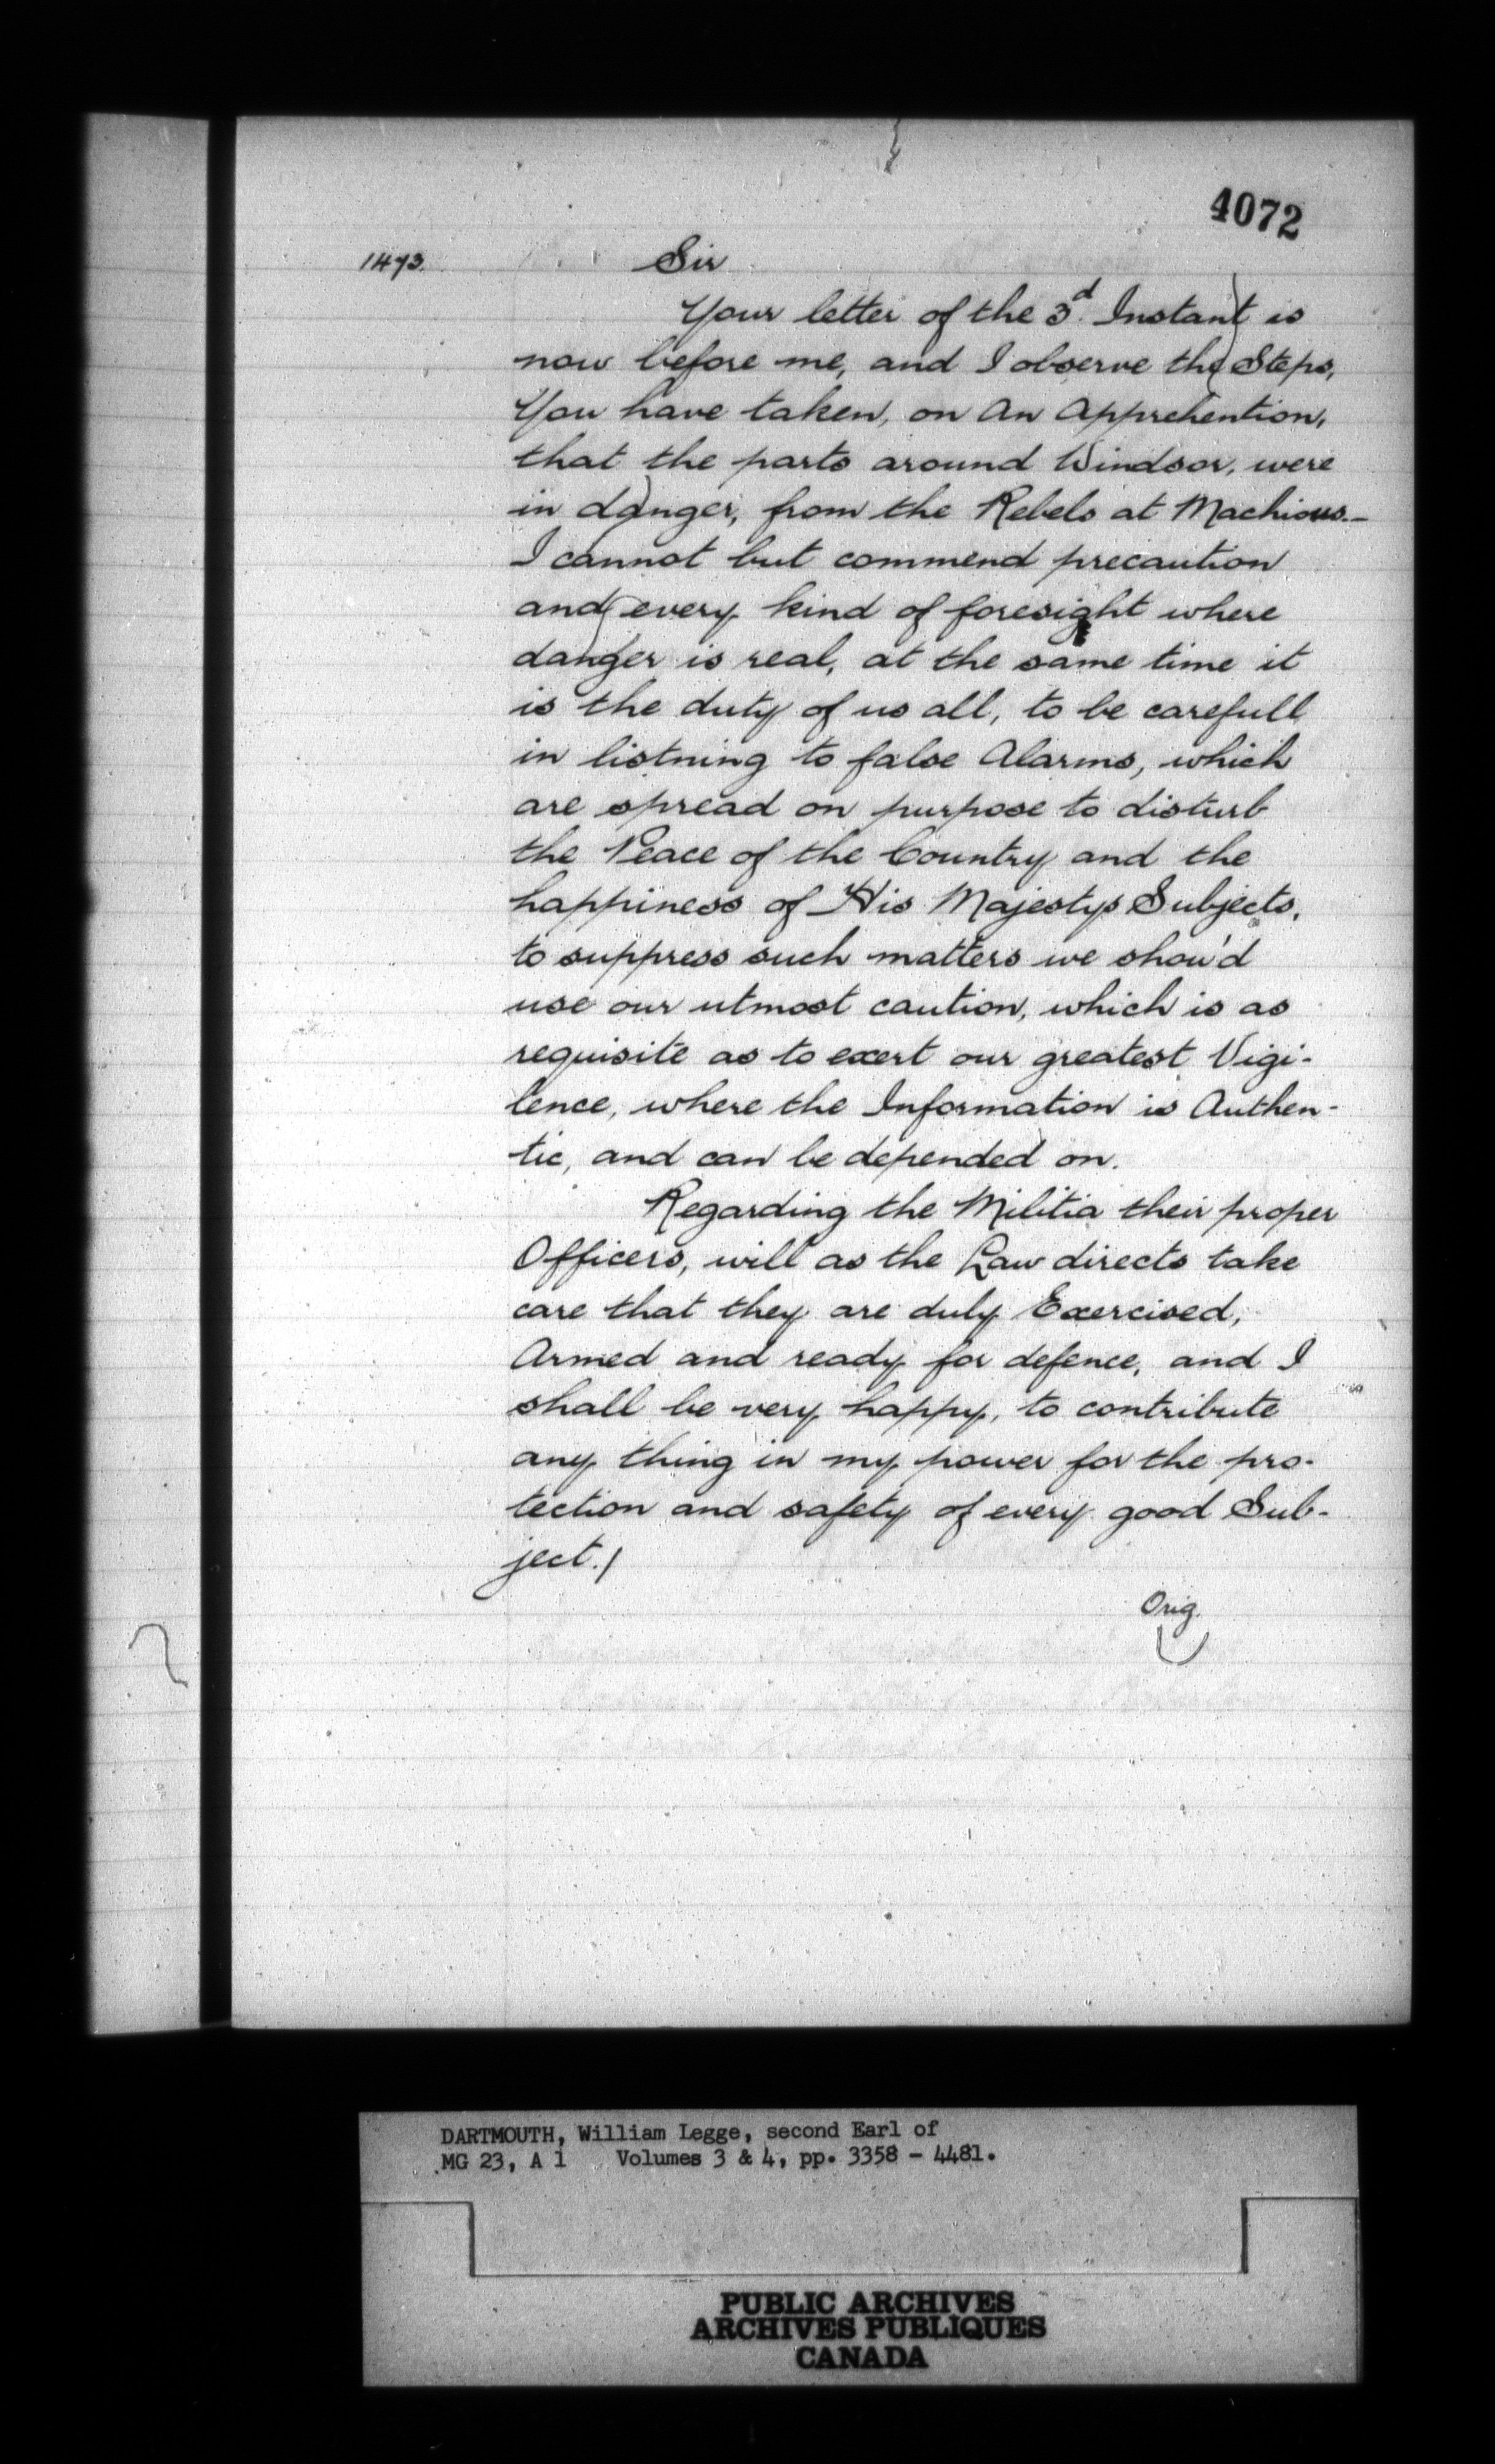 4072
1473. Sir
Your letter of the 3d. Instant is
now before me, and I observe the Steps,
You have taken, on An Apprehention,
that the parts around Windsor, were
in danger, from the Rebels at Machious.—
I cannot but commend precaution
and every kind of foresight where
danger is real, at the same time it
is the duty of us all, to be carefull
in listning to false Alarms, which
are spread on purpose to disturb
the Peace of the Country and the
happiness of His Majestys Subjects,
to suppress such matters we shou'd
use our utmost caution, which is as
requisite as to exert our greatest Vigi-
lence, where the Information is Authen-
tic, and can be depended on.
Regarding the Militia their proper
Officers, will as the Law directs take
care that they are duly Exercised,
Armed and ready for defence, and I
shall be very happy, to contribute
any thing in my power for the pro-
tection and safety of every good Sub-
ject./
Orig.
DARTMOUTH, William Legge, second Earl of
MG 23, A 1 Volumes 3 & 4, pp. 3358 - 4481.
PUBLIC ARCHIVES
ARCHIVES PUBLIQUES
CANADA